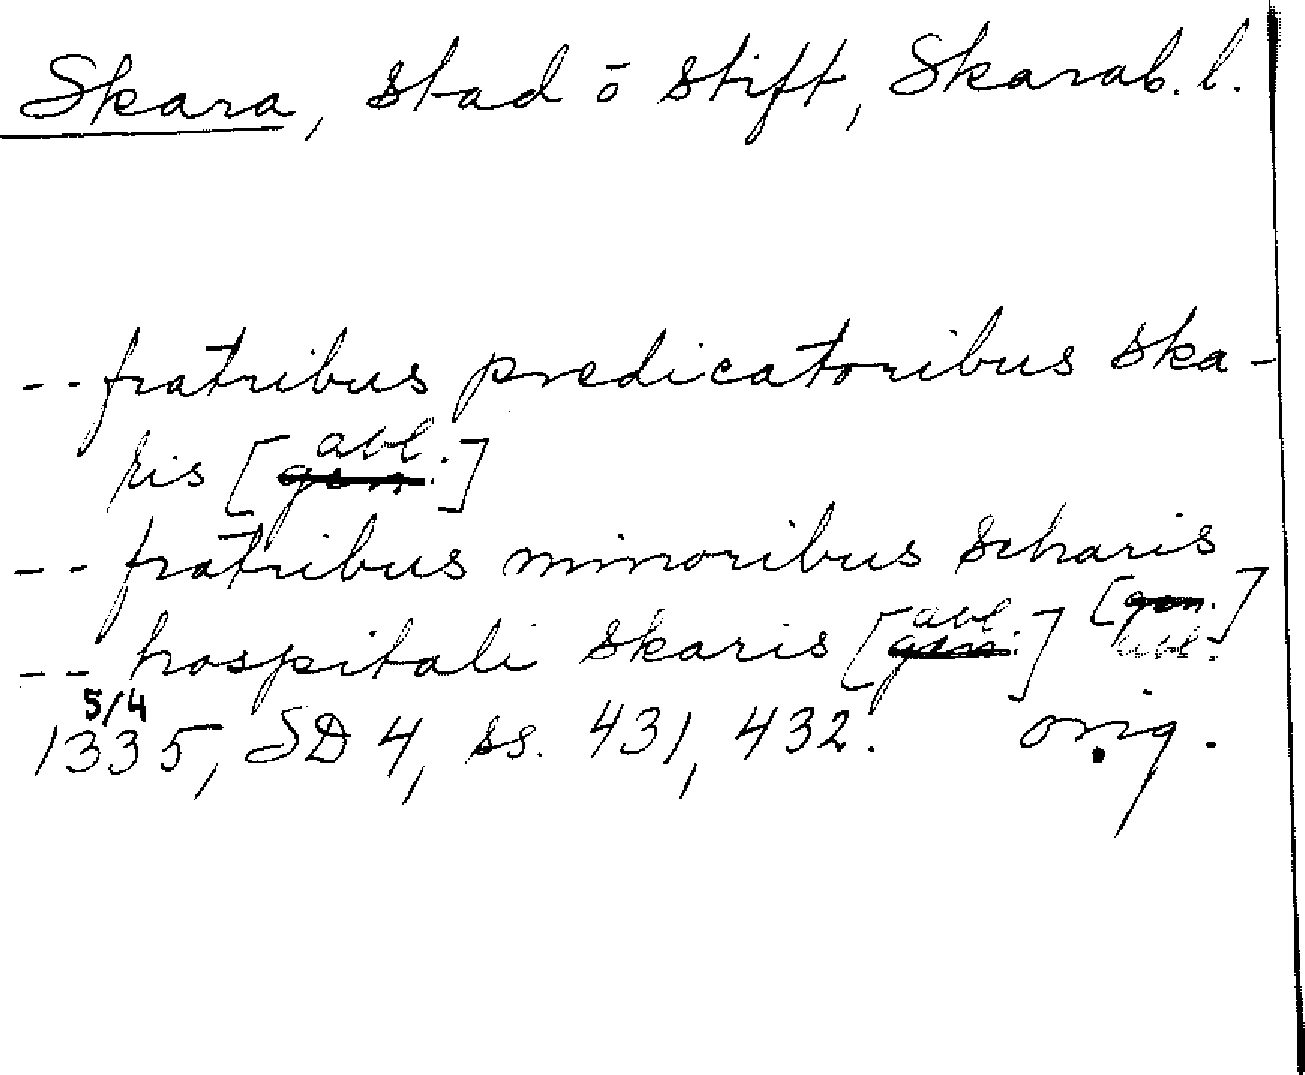 Skara, stad ō stift, Skarab. l.
-- fratribus predicatoribus ska-
ris [abl. gen.]
-- fratribus minoribus scharis
[gen. abl.]
-- hospitali skaris [abl gen.]
5/4
1335, SD 4, ss. 431, 432. orig.